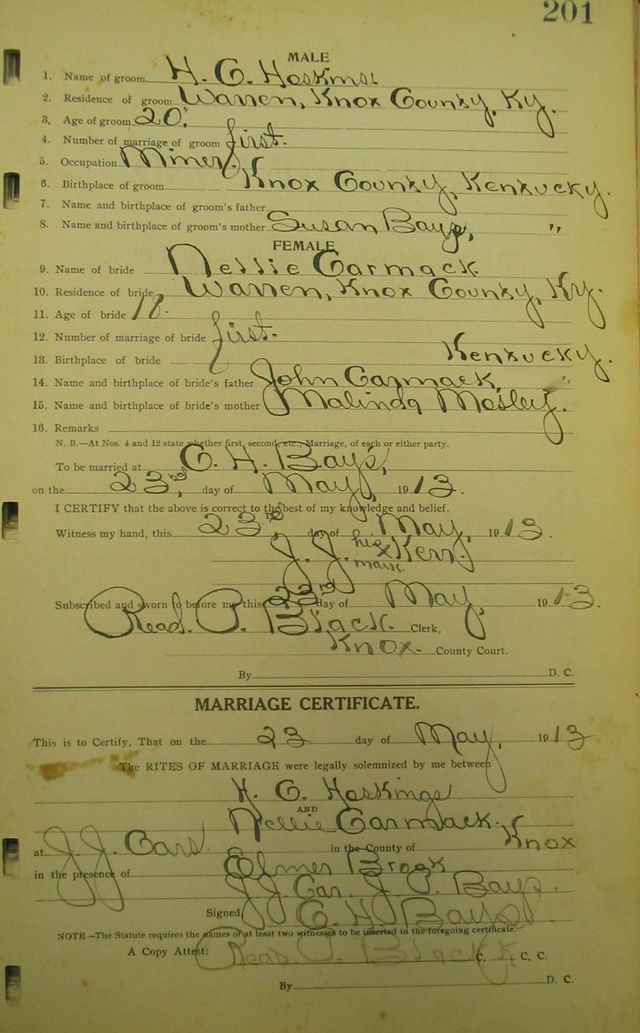 201
MALE
1. Name of groom H. C.
2. Residence of groom Warren, Knox County, Ky.
3. Age of groom 20.
4. Number of marriage of groom first.
5. Occupation Miner.
6. Birthplace of groom Knox County, Kentucky.
7. Name and birthplace of groom's father
8. Name and birthplace of groom's mother Susan Bays, "
FEMALE
9. Name of bride Nellie Carmack
10. Residence of bride Warren, Knox County, Ky.
11. Age of bride 18.
12. Number of marriage of bride first.
13. Birthplace of bride Kentucky.
14. Name and birthplace of bride's father John Carmack, "
15. Name and birthplace of bride's mother Malinda Mosley.
16. Remarks
N. B.—At Nos. 4 and 12 state whether first, second, etc., Marriage, of each or either party.
To be married at C. H. Bays,
on the 23rd, day of May, 1913.
I CERTIFY that the above is correct to the best of my knowledge and belief.
Witness my hand, this 23rd day of May, 1913.
J. J. his x mark
Subscribed and sworn to before me this 23rd day of May, 1913.
Read. P. Black. Clerk,
Knox. County Court.
By D. C.
MARRIAGE CERTIFICATE.
This is to Certify, That on the 23 day of May, 1913
The RITES OF MARRIAGE were legally solemnized by me between
H. C. Hoskings
AND
Nellie Carmack.
at J. J. in the County of Knox
in the presence of Elmer Brock
J. J. J. Bays.
Signed C. H. Bays
NOTE—The Statute requires the names of at least two witnesses to be inserted in the foregoing certificate.
A Copy Attest: Read. P. Black C. C. C.
By D. C.